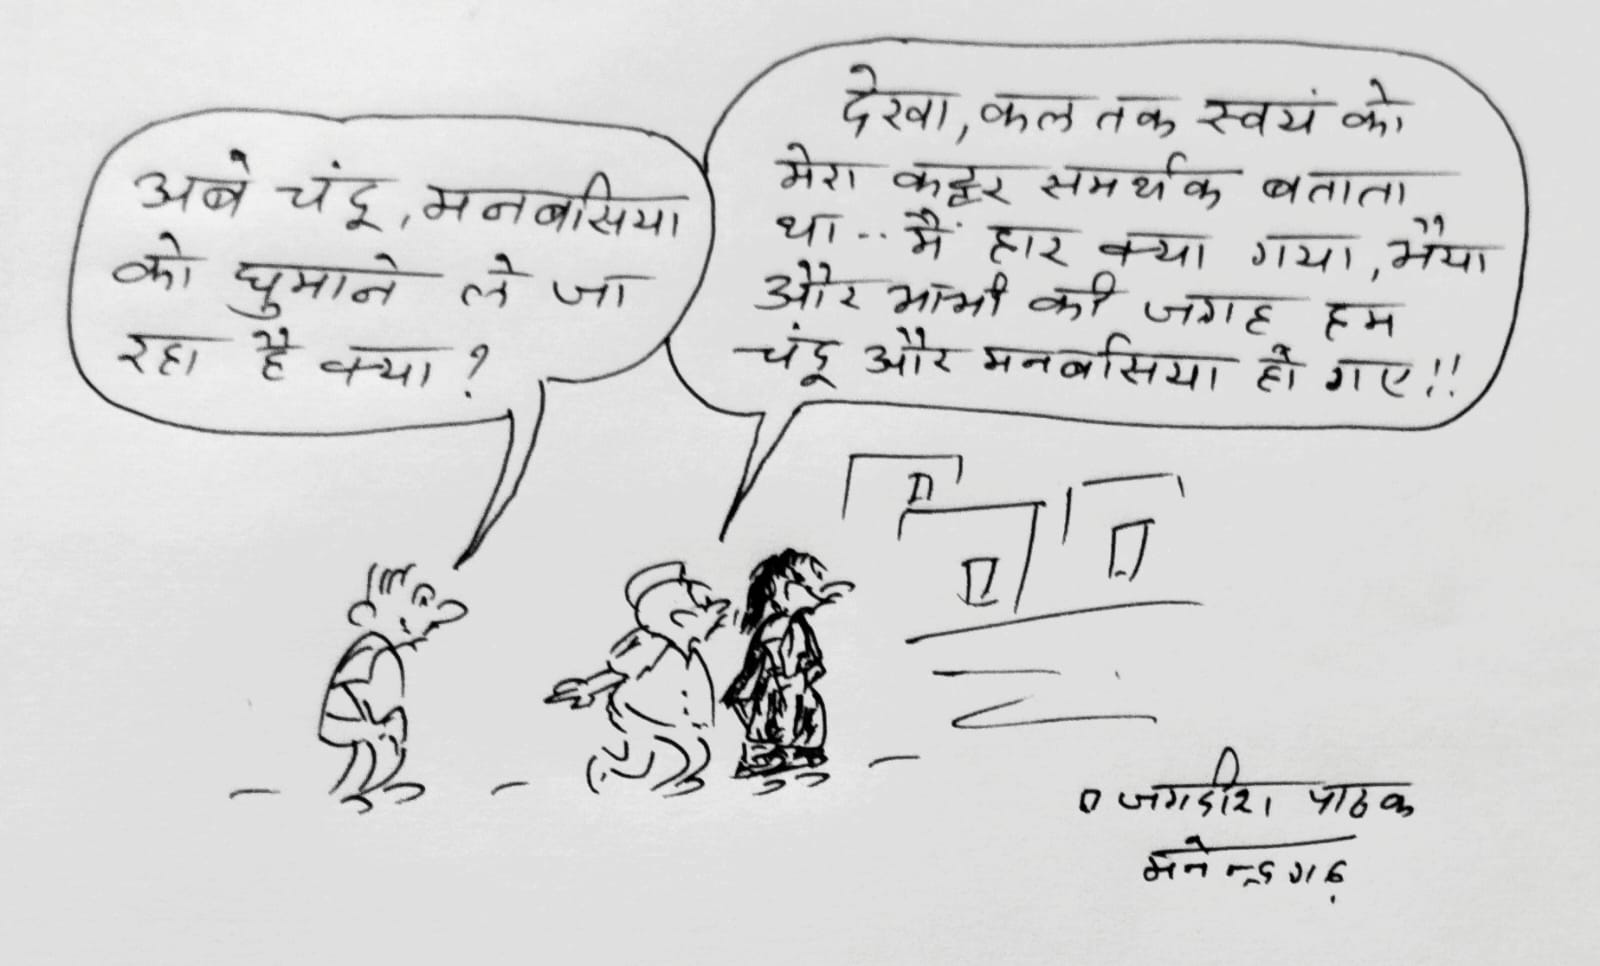 अबे चंदू, मनबसिया
को घुमाने ले जा
रहा है क्या?
देखा, कल तक स्वयं को
मेरा कट्टर समर्थक बताता
था.. मैं हार क्या गया, भैया
और भाभी की जगह हम
चंदू और मनबसिया हो गए!!
जगदीश पाठक
मनेन्द्रगढ़